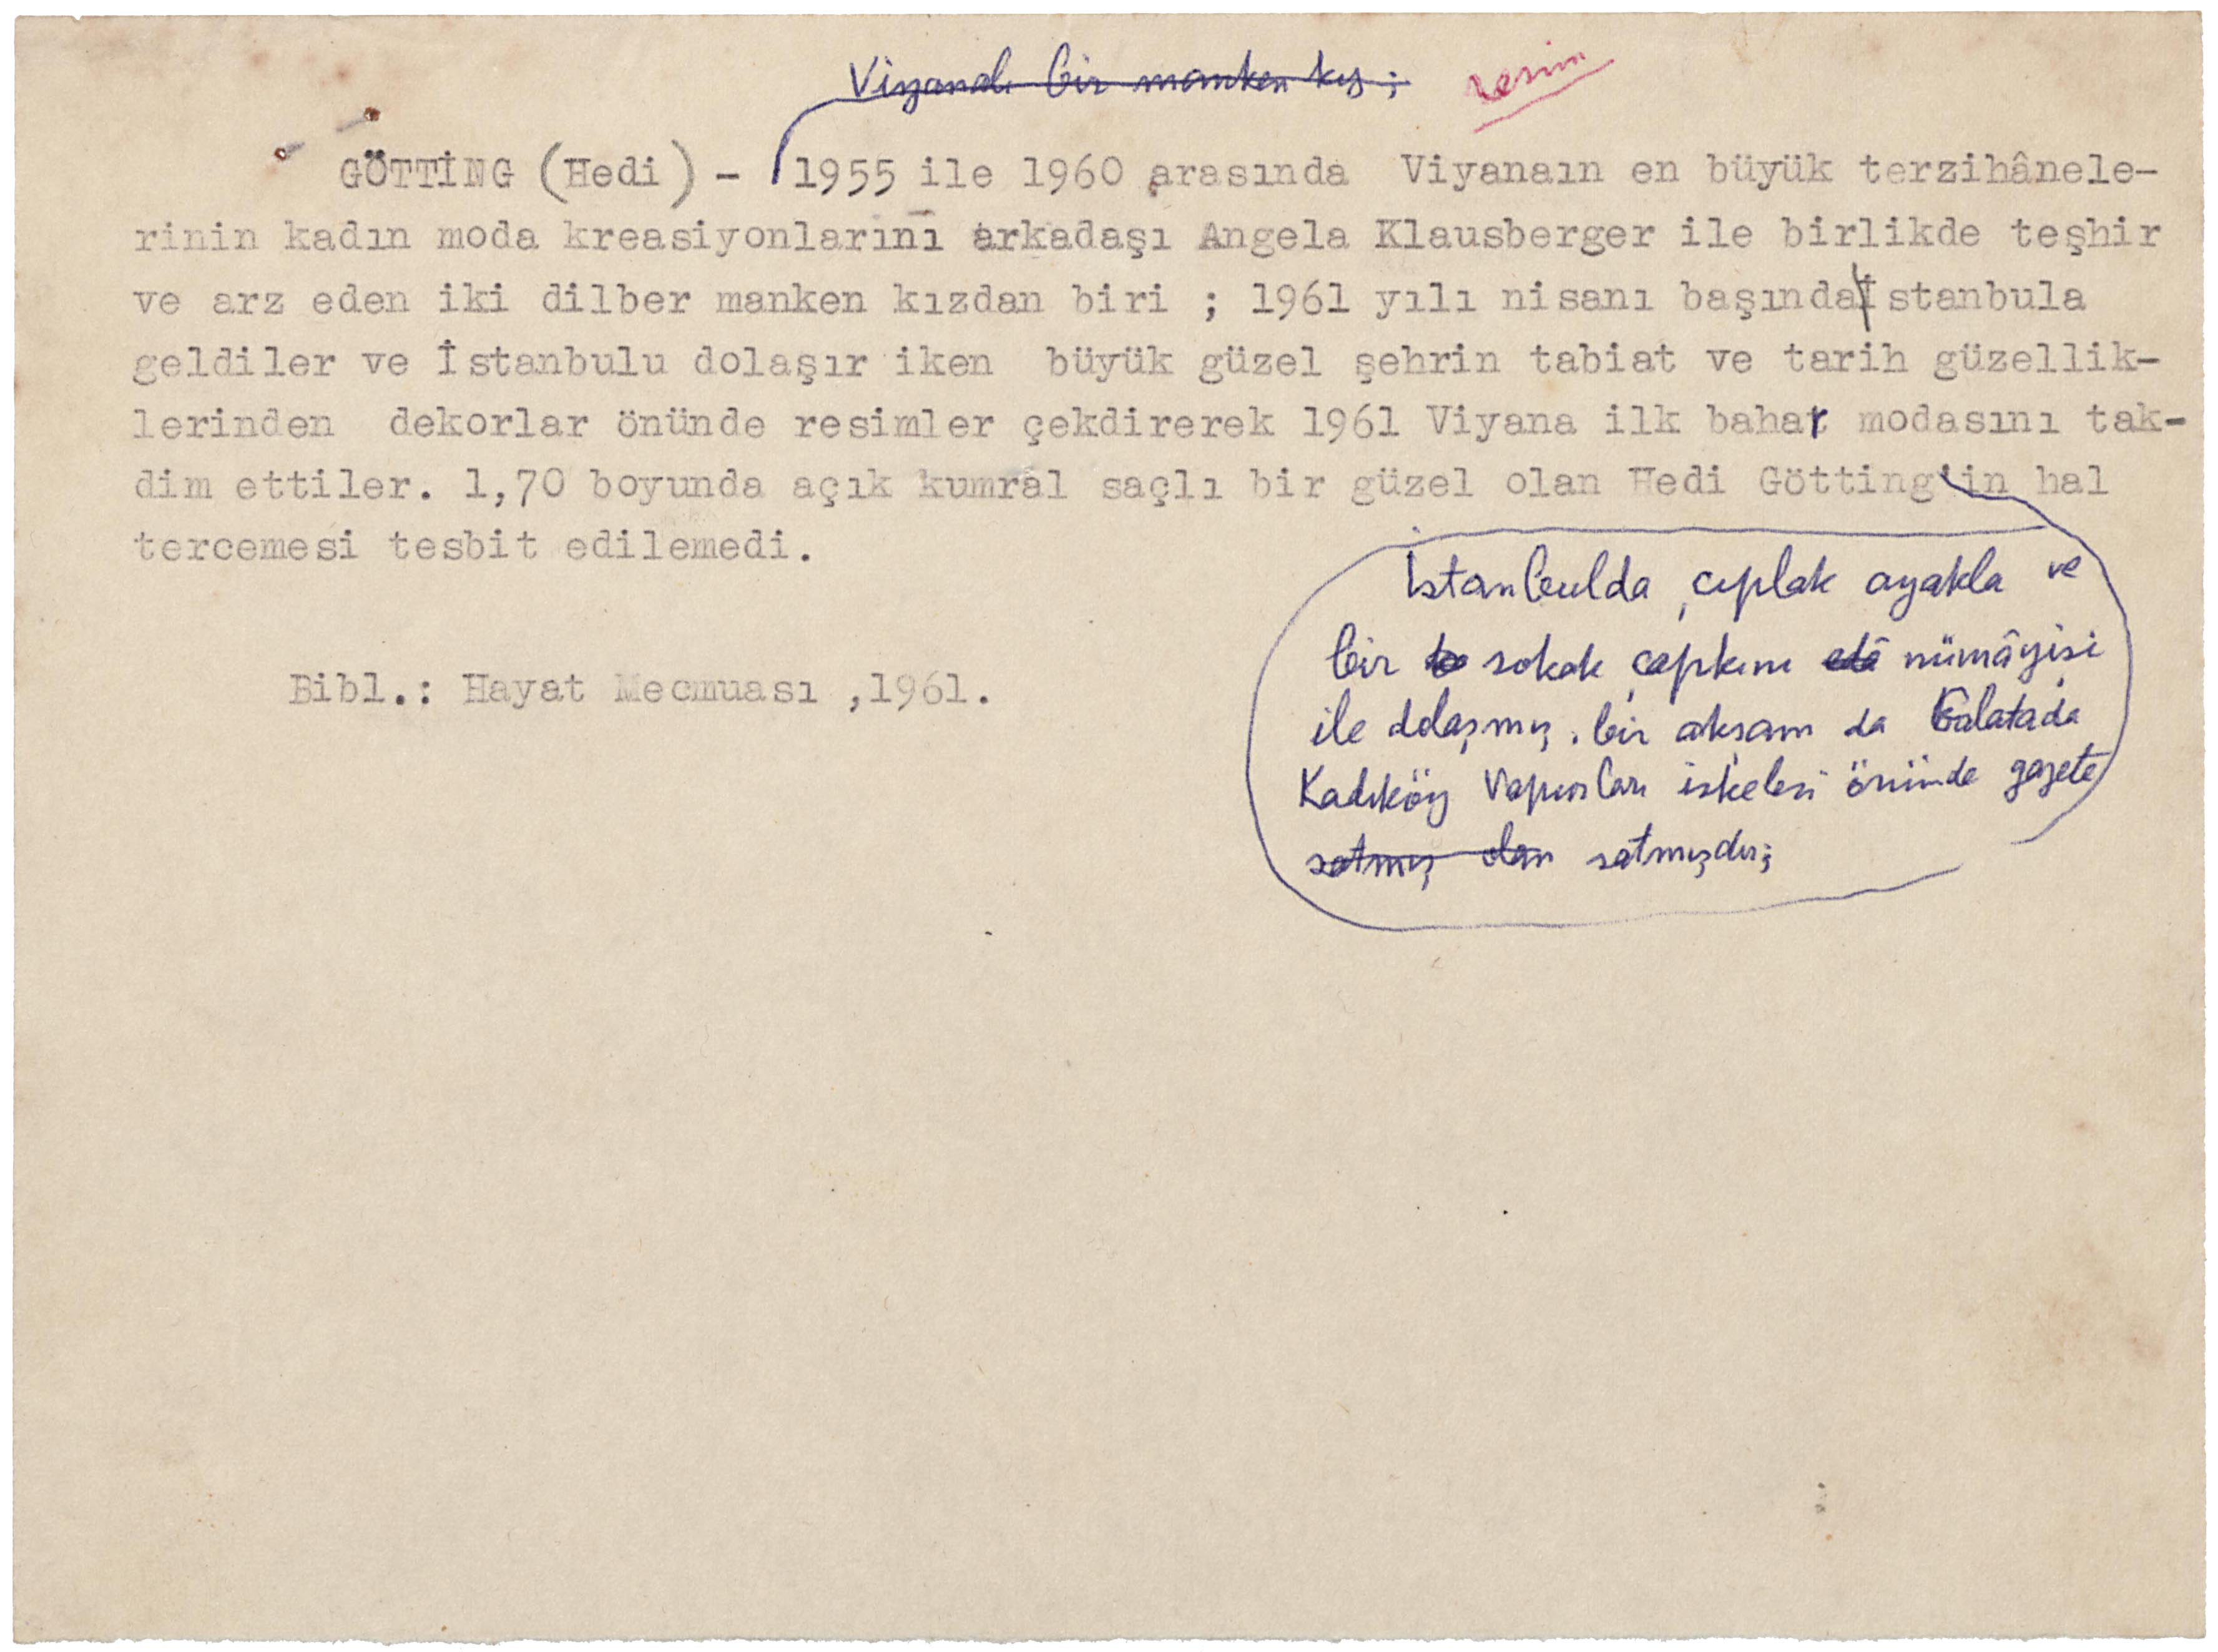 Viyanalı bir manken kız ; resim
GÖTTİNG (Hedi) - 1955 ile 1960 arasında Viyanaın en büyük terzihânele-
rinin kadın moda kreasiyonlarını arkadaşı Angela Klausberger ile birlikde teşhir
ve arz eden iki dilber manken kızdan biri ; 1961 yılı nisanı başında İstanbula
geldiler ve İstanbulu dolaşır iken büyük güzel şehrin tabiat ve tarih güzellik-
lerinden dekorlar önünde resimler çekdirerek 1961 Viyana ilk bahar modasını tak-
dim ettiler. 1,70 boyunda açık kumral saçlı bir güzel olan Hedi Götting'in hal
tercemesi tesbit edilemedi.
İstanbulda çıplak ayakla ve
bir sokak çapkını edâ nümâyişi
ile dolaşmış, bir akşam da Galatada
Kadıköy Vapurları iskelesi önünde gazete
satmış olan satmışdır;
Bibl.: Hayat Mecmuası ,1961.